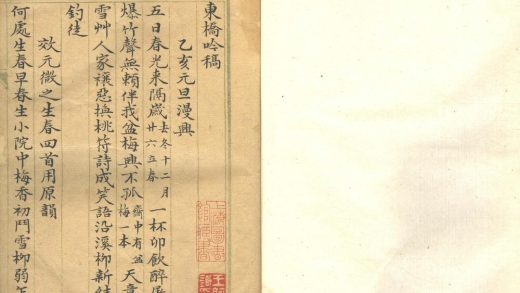 東橋吟稿
乙亥元旦漫興
五日春光来隔歲去冬十二月廿六立春一杯卯飲醉
爆竹聲無賴伴我盆梅興不孤齋中有盆梅一本天意
雪艸人家禳惡換桃符詩成笑語沿溪柳新結
釣徒
效元微之生春四首用原韻
何處生春早春生小院中梅香初鬥雪柳弱